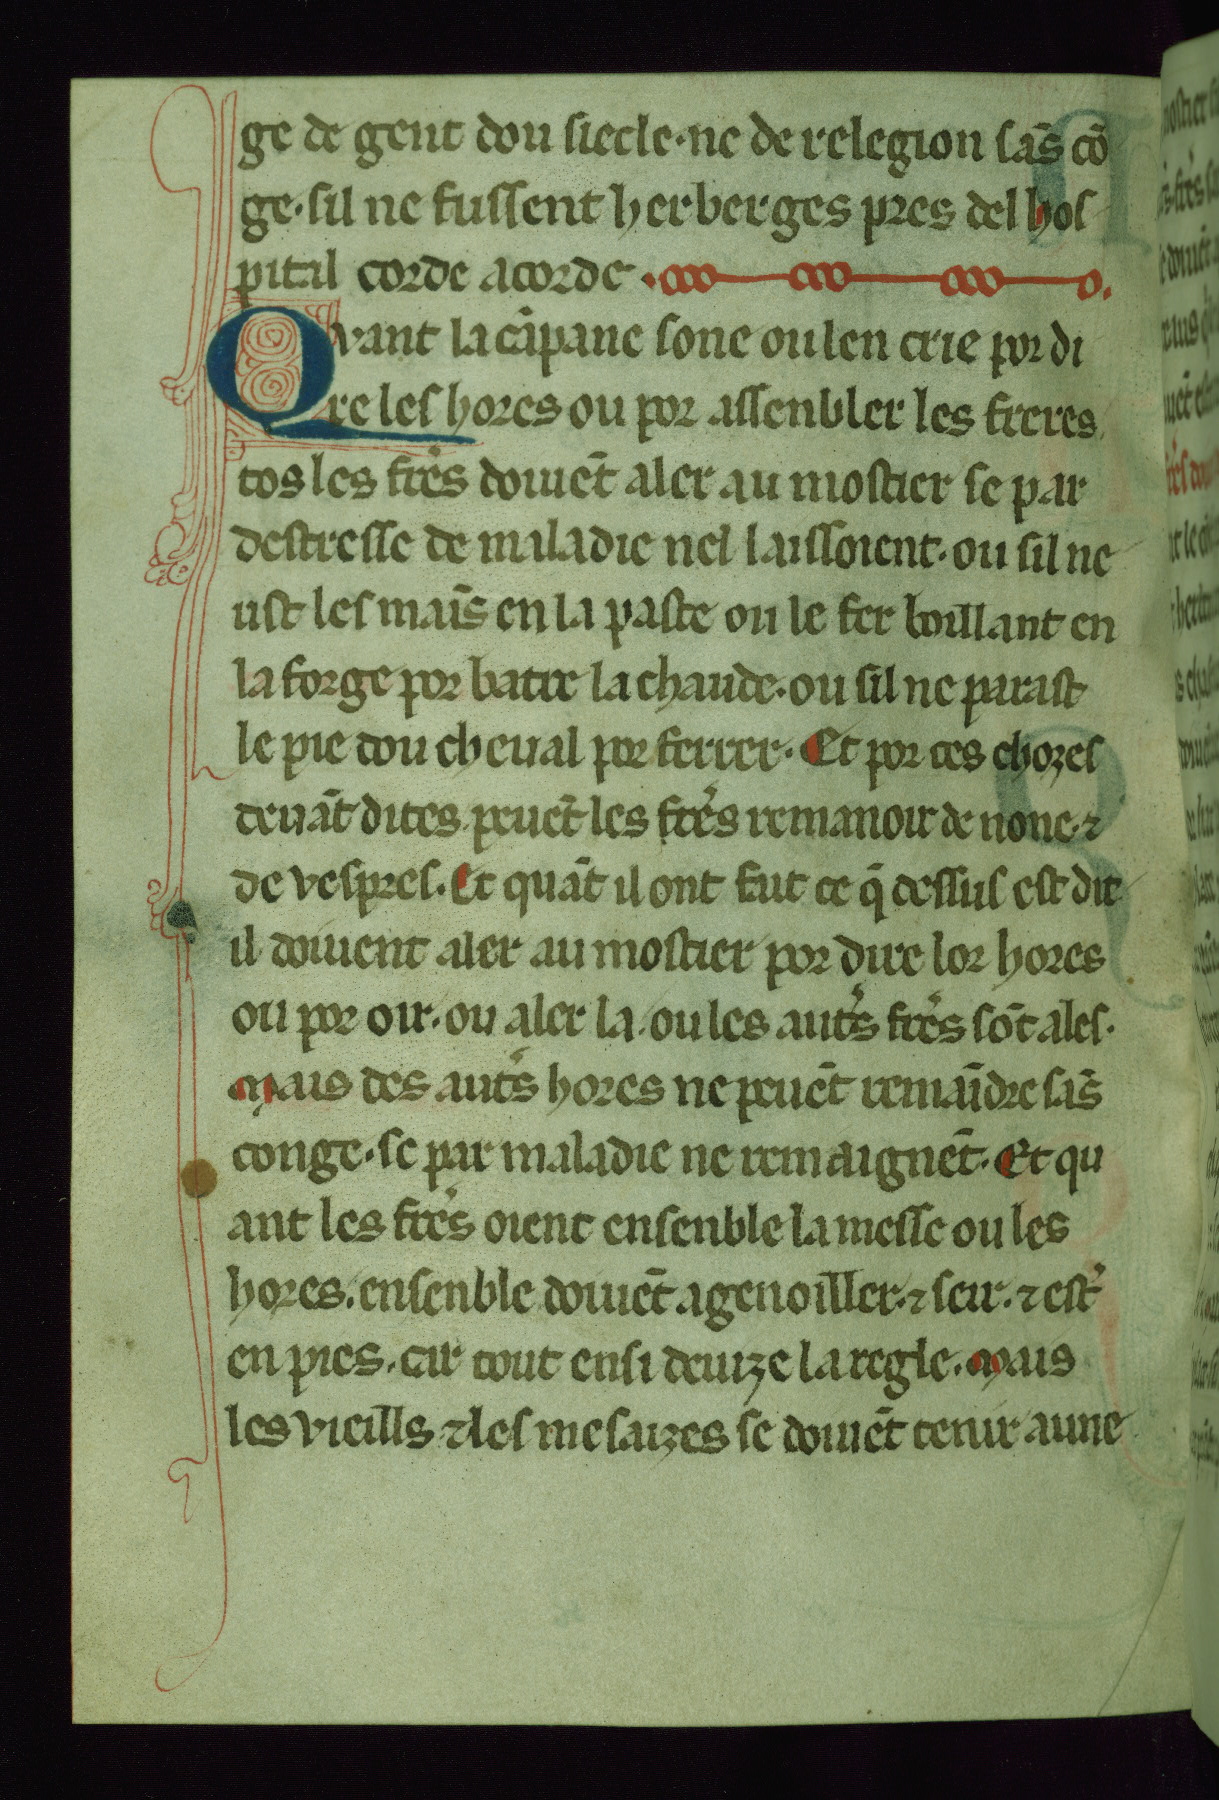 ge de gent dou siecle·ne de relegion sãs cõ
ge·sil ne fussent herberges pres del hos
pital corde acorde·
Qvant la cãpane sone ou len crie por di
re les hores ou por assenbler les freres
tos les frẽs doiuẽt aler au mostier se par
destresse de maladie nel laissoient·ou sil ne
ust les mais en la paste ou le fer boillant en
la forge por batre la chaude·ou sil ne parast
le pie dou cheual por ferrer·Et por ces chozes
deuãt dites peuẽt les frẽs remanoir de none·⁊
de vespres·Et quãt il ont fait ce q̃ dessus est dit
il doiuent aler au mostier por dire lor hores
ou por oir·ou aler la·ou les autẽs frẽs sõt ales·
Mais des autẽs hores ne peuẽt remãidre sãs
conge·se par maladie ne remaignẽt·Et qu
ant les frẽs oient ensenble la messe ou les
hores·ensenble doiuẽt agenoiller·⁊ seir·⁊ est'
en pies·car tout ensi deuize la regle·Mais
les vieills ⁊ les mesaizes se doiuẽt tenir aune